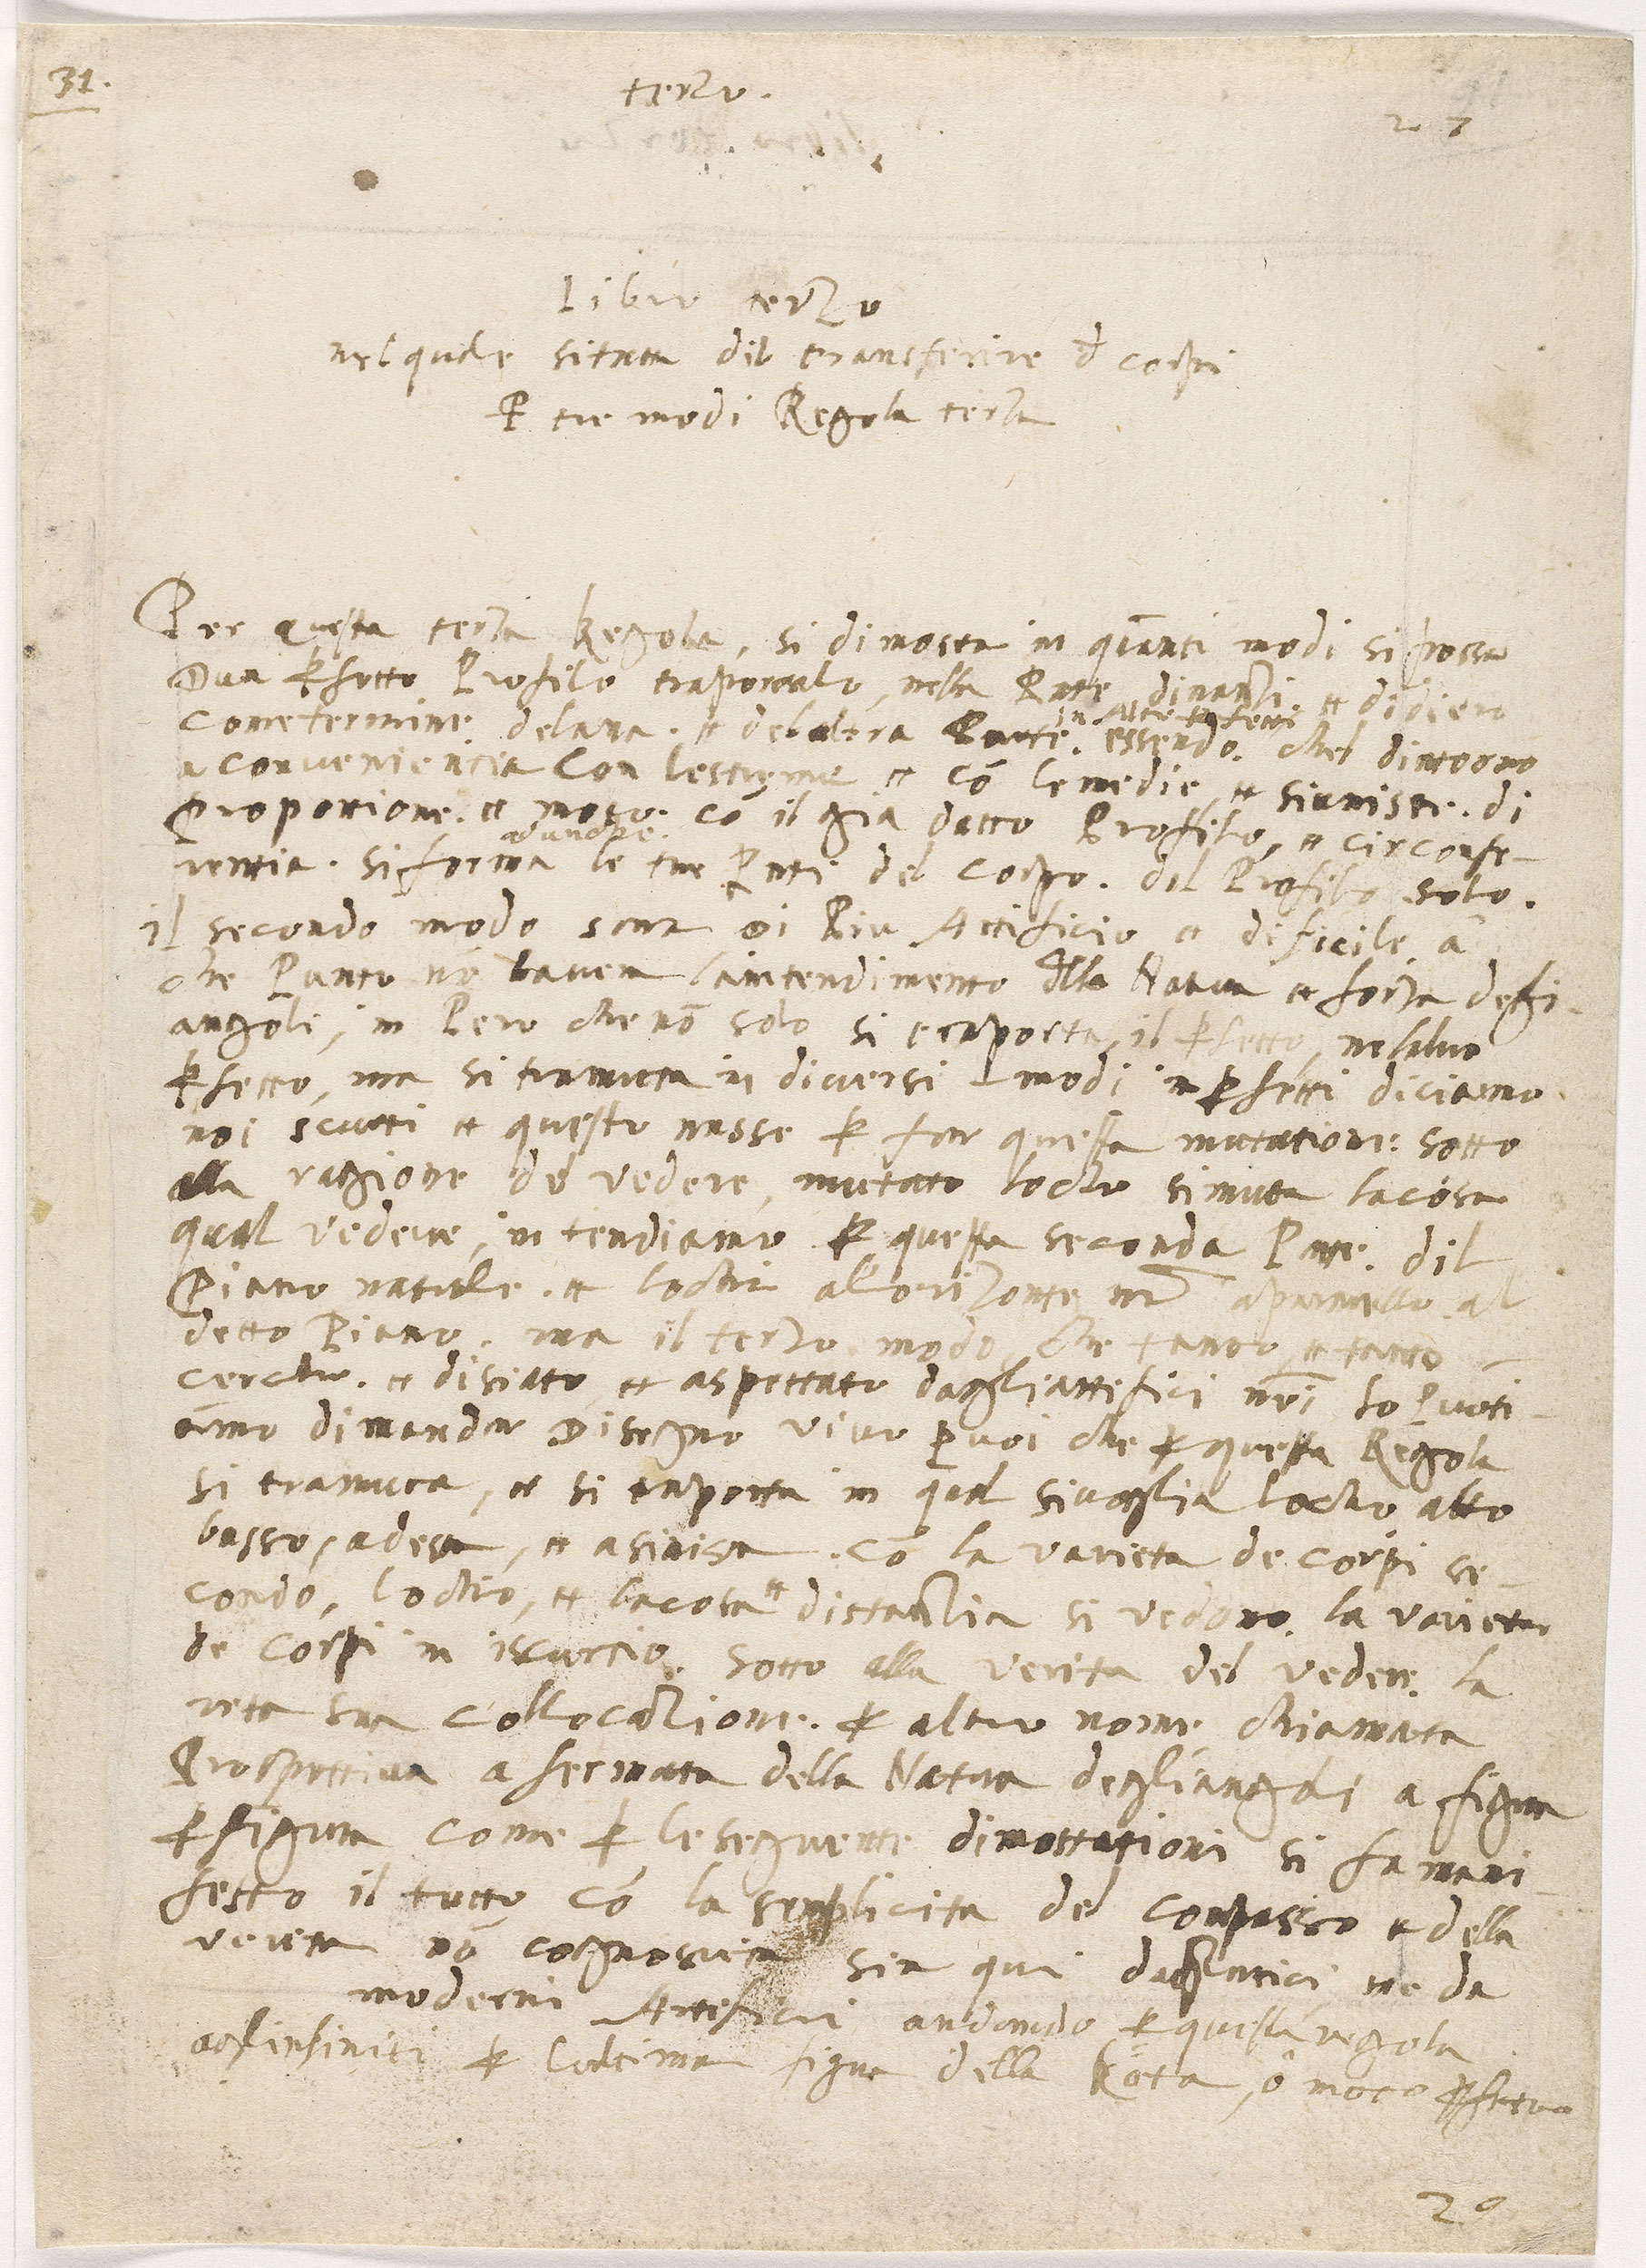 31.
terzo.
27
Libro terzo
nel quale si tratta dil transferire d corpi
P tre modi Regola terza
Per questa terza Regola, si dimostra in quanti modi si possa
Dun pfetto Profilo traportarlo, nella Parte dinanzi et didiero
come termine delluna. et del altra Parte. essendo. chel dintorno
a convenientia con lestreme et cō le medie et siunisce. di
proportione. et moto. cō il gia datto Profilo, et circonfe-
adunche.
rentia. si forma le tre Parti del corpo. dil Profilo solo.
il secondo modo sera di Piu Artificio et dificile, a
che Punto nō havera laintendimento dlla Natura et forza degli
angoli, in Pero che nō solo si traporta, il pfetto, nelaltro
pfetto, ma si tramuta in diversi modi inpfetti diciamo
noi scurti et questo nasse p far questa mutatione. sotto
alla ragione del vedere, mutato locho simuta lacosa
qual vedere, intendiamo p questa seconda Parte. dil
Piano naturale. et locho al orizonte apararello al
detto Piano. ma il terzo modo che tanto et tanto
cercho. et disiato, et aspettato dagliartifici nr̄i lo Puoti-
āmo dimandar Disegno vivo Puoi che p questa Regola
si tramuta, et si traporta in qual sivoglia locho alto
basso, adestra, et asinistra. cō la varieta de corpi se-
condo, locho, et lacosa et distanzia si vedono. la varieta
de corpi in iscurtio. sotto alla verita del vedere. la
retta sua collocazione. p altro nome chiamata
Prospettiva afermata della Natura degliangoli a figura
p figura come p le seguente dimostrationi si fa mani-
festo il tutto cō la senplicita del conpasso et della
verita nō cognosuta sin qui dagliantici ne da
moderni Artefici andando p questa regola
aglinfiniti p lultima figura della Rota, o moto
29